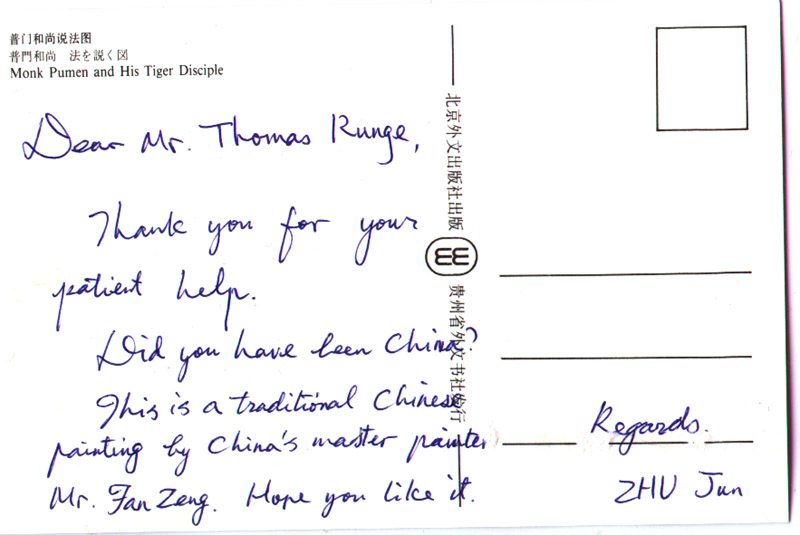 普门和尚说法图
普門和尚　法を説く図
Monk Pumen and His Tiger Disciple
Dear Mr. Thomas Runge,
Thank you for your
patient help.
Did you have been China?
This is a traditional Chinese
painting by China's master painter
Mr. Fan Zeng. Hope you like it.
北京外文出版社出版
贵州省外文书社发行
Regards.
ZHU Jun